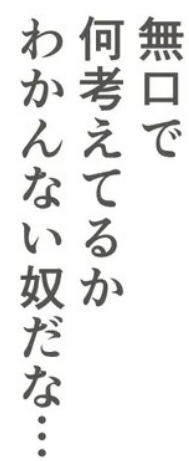 無口で
何考えてるか
わかんない奴だな…